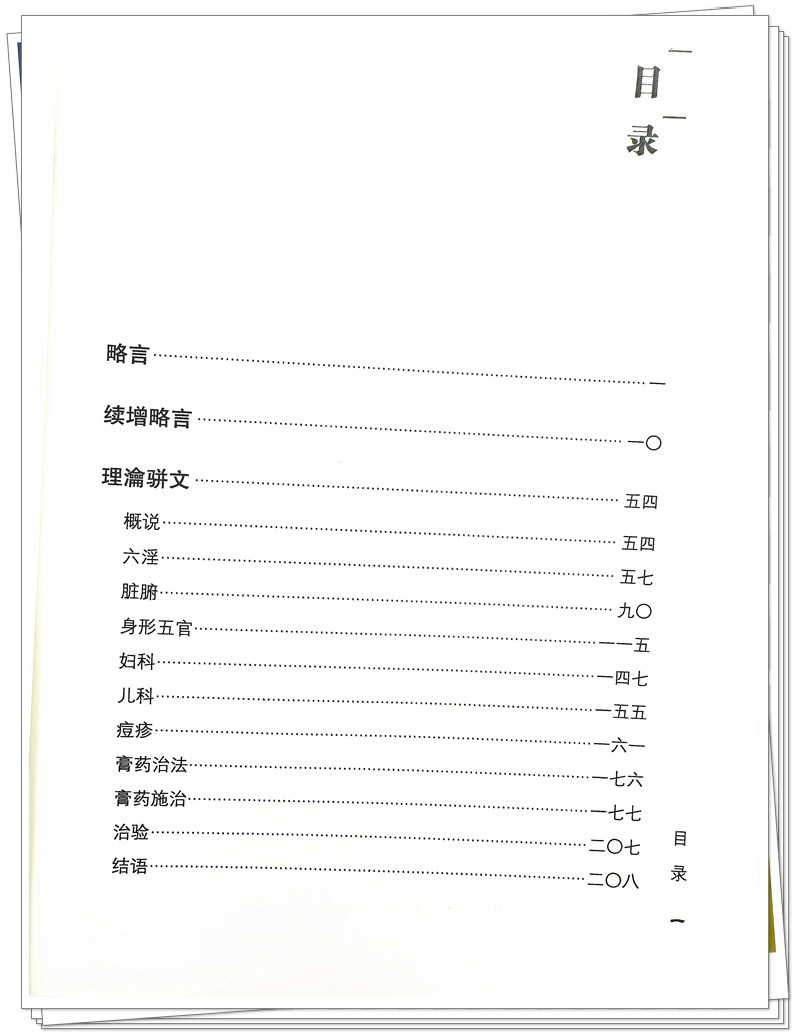 目录
略言……一
续增略言……一〇
理瀹骈文……五四
概说……五四
六淫……五七
脏腑……九〇
身形五官……一一五
妇科……一四七
儿科……一五五
痘疹……一六一
膏药治法……一七六
膏药施治……一七七
治验……二〇七
结语……二〇八
目录
一